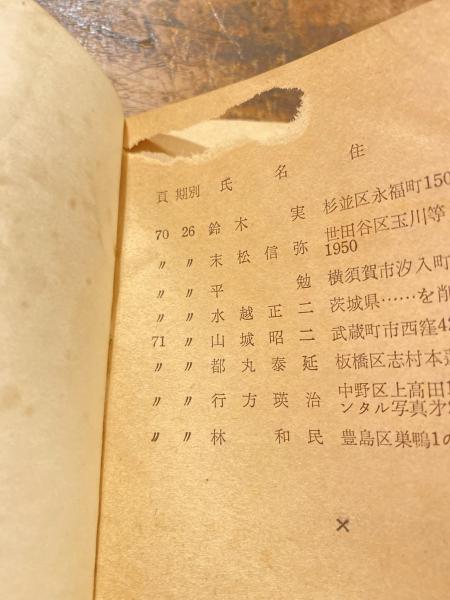 頁 期別 氏 名 住
70 26 鈴木 実 杉並区永福町150
〃 〃 末松信弥 世田谷区玉川等
1950
〃 〃 平 勉 横須賀市汐入町
〃 〃 水越正二 茨城県……を削
71 〃 山城昭二 武蔵町市西窪42
〃 〃 都丸泰延 板橋区志村本蓮
〃 〃 行方瑛治 中野区上高田1
ンタル写真才2
〃 〃 林 和民 豊島区巣鴨1の
×